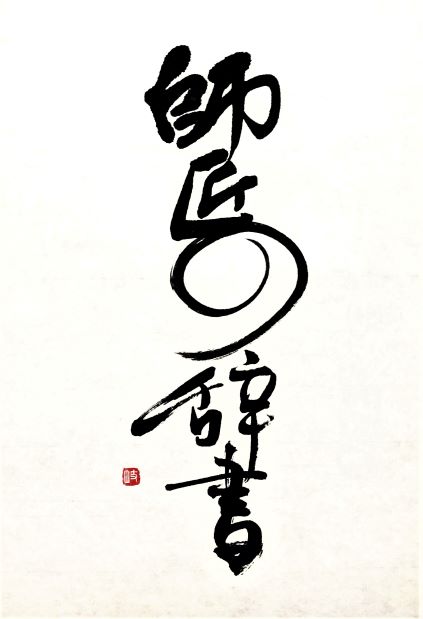 師匠の辞書